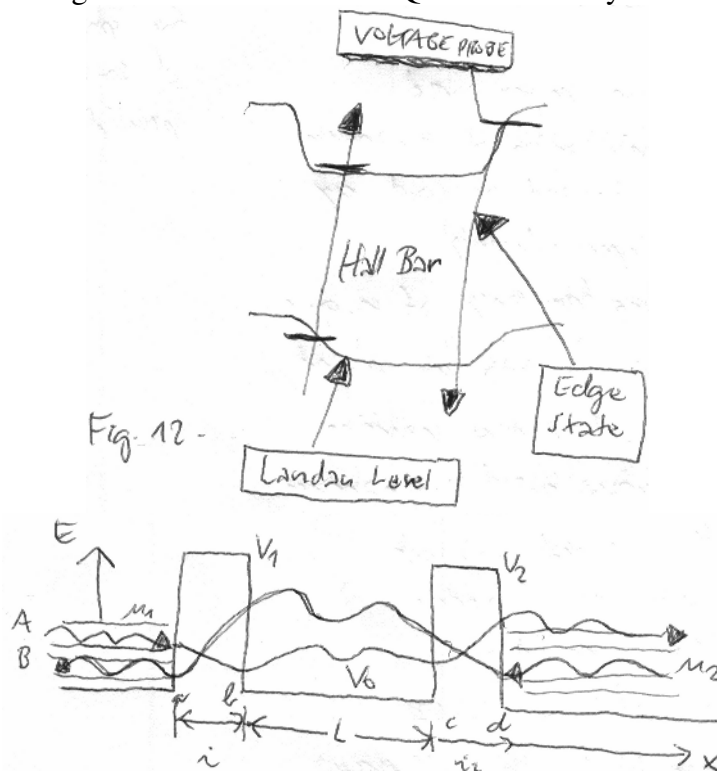 VOLTAGE PROBE
Hall Bar
Edge
State
Fig. 12.
Landau Level
E
V1
V2
A
μ1
B
V0
μ2
a
b
L
c
d
i
i2
x